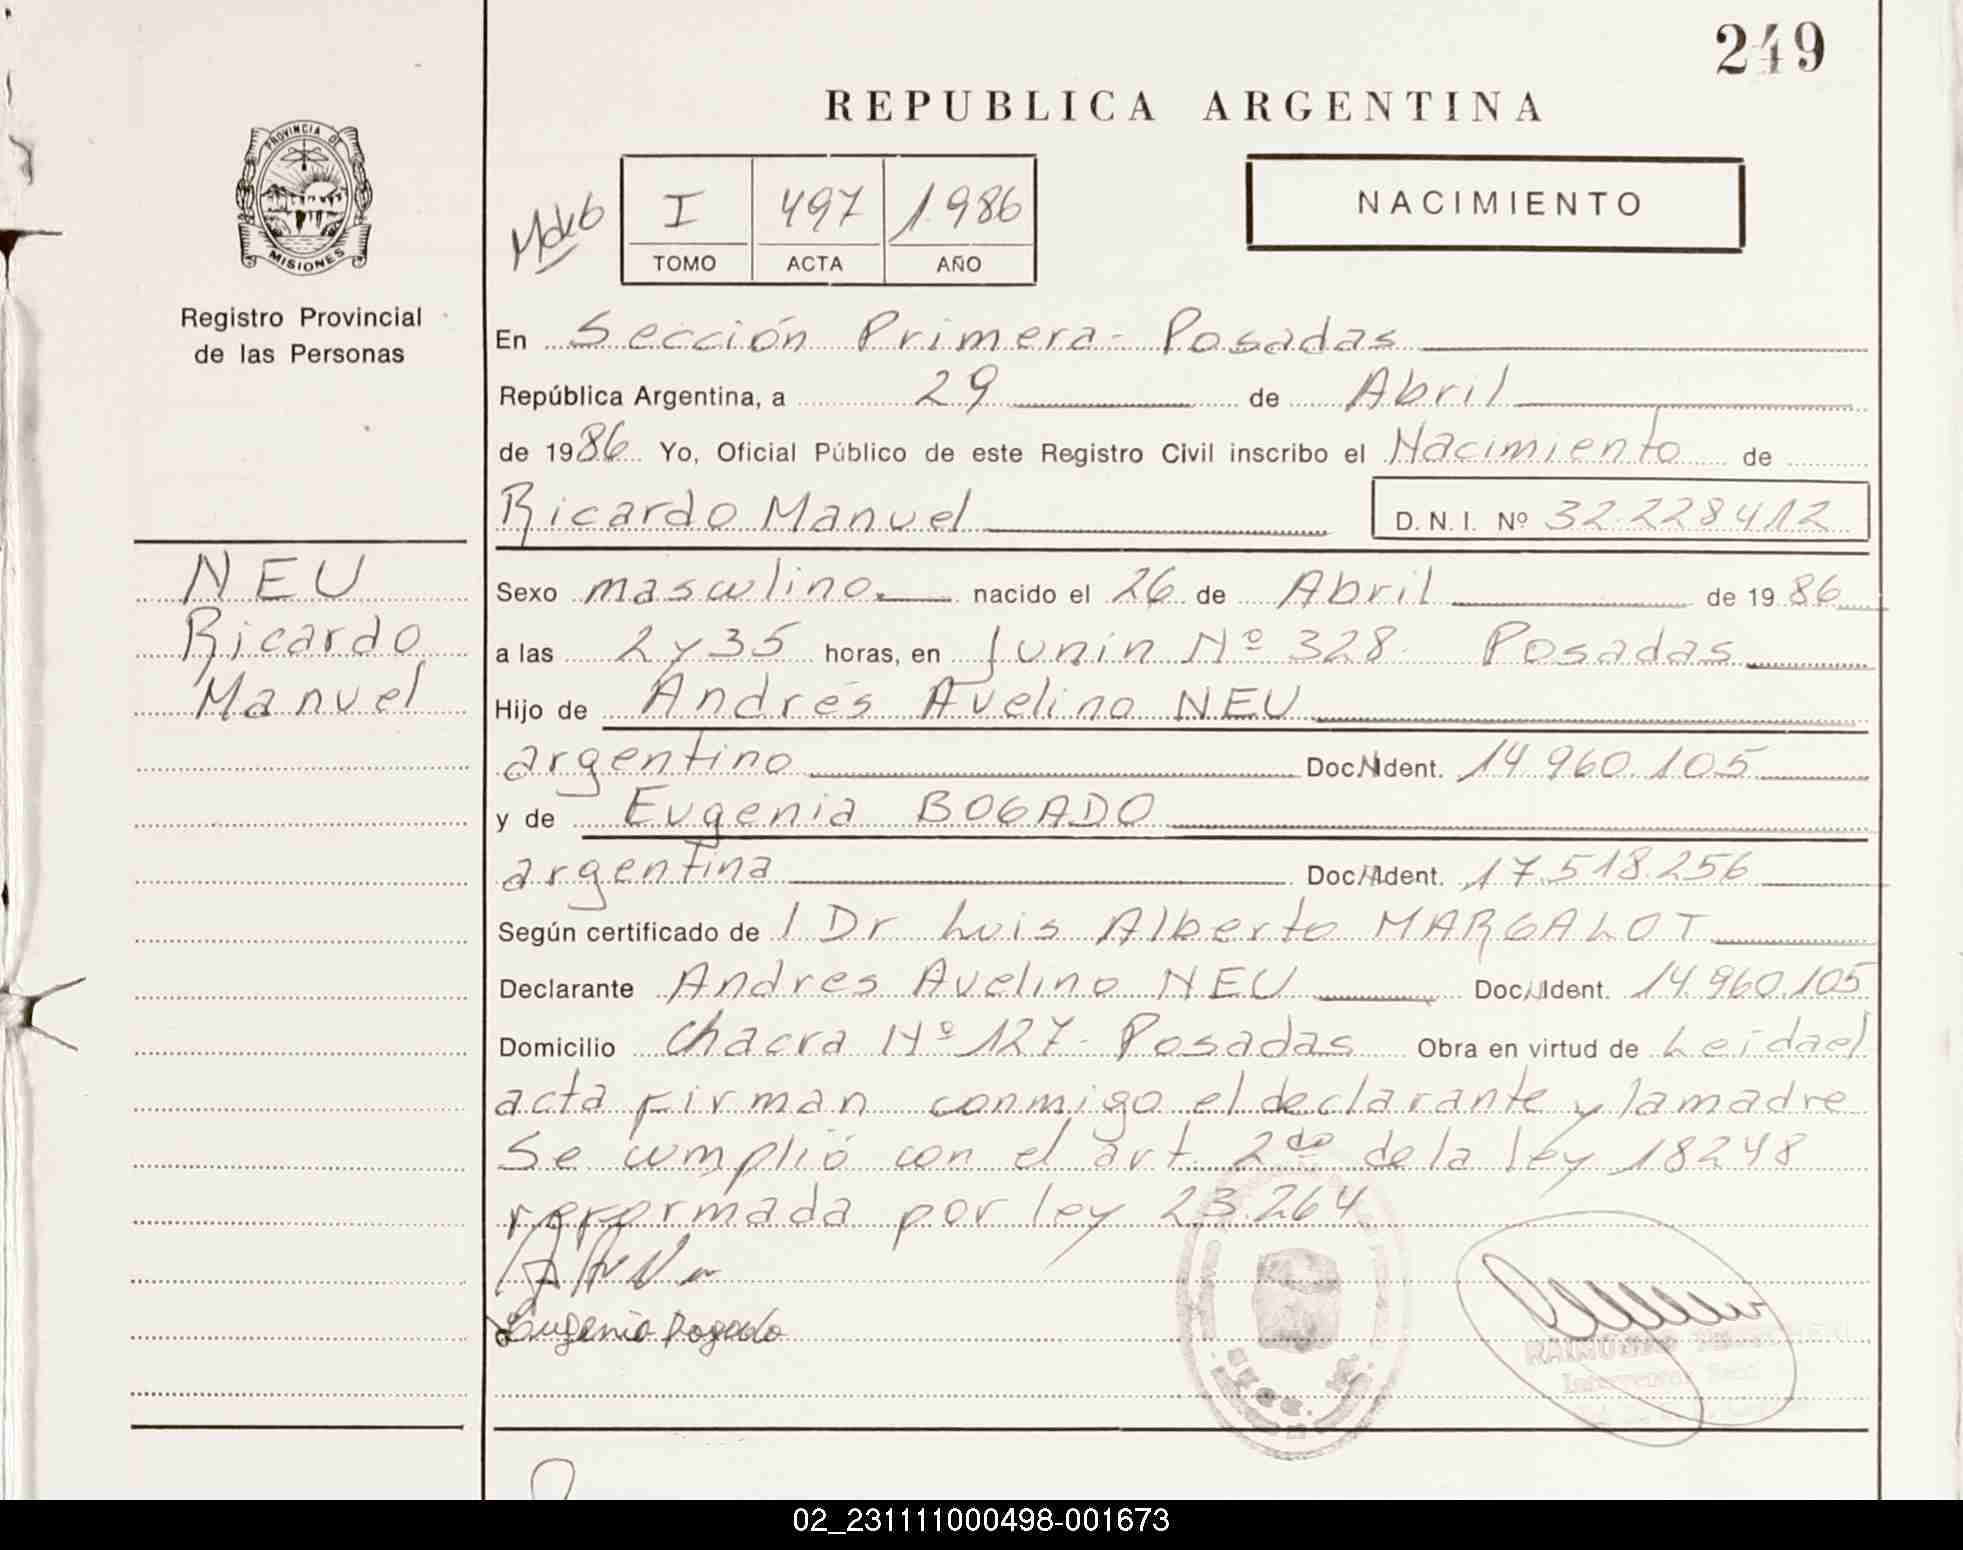 249
REPUBLICA ARGENTINA
PROVINCIA DE
MISIONES
Registro Provincial
de las Personas
I 497 1986
TOMO ACTA AÑO
NACIMIENTO
En Sección Primera - Posadas
República Argentina, a 29 de Abril
de 1986 Yo, Oficial Público de este Registro Civil inscribo el Nacimiento de
Ricardo Manuel D.N.I. Nº 32.228412
NEU
Ricardo
Manuel
Sexo masculino. nacido el 26 de Abril de 1986
a las 2 y 35 horas, en Junín Nº 328. Posadas
Hijo de Andrés Avelino NEU
argentino Doc. Ident. 14.960.105
y de Eugenia BOGADO
argentina Doc. Ident. 17.518.256
Según certificado de l Dr Luis Alberto MARGALOT
Declarante Andres Avelino NEU Doc. Ident. 14.960.105
Domicilio Chacra Nº 127 - Posadas Obra en virtud de Leida el
acta firman conmigo el declarante y la madre
Se cumplió con el art 2do de la ley 18248
reformada por ley 23.264
Eugenia Bogado
02_231111000498-001673